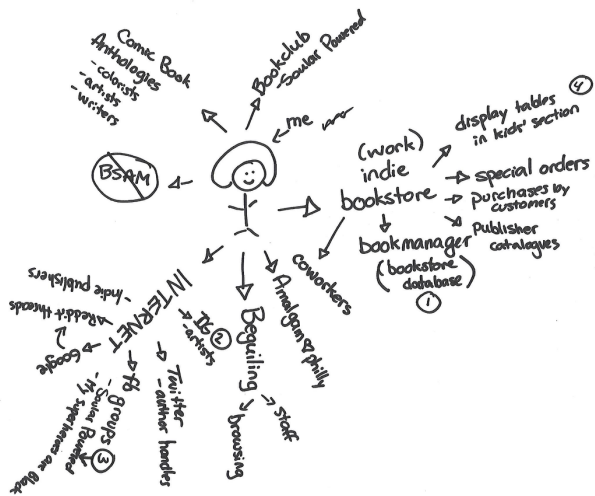 Comic Book
Anthologies
- colorists
- artists
- writers
Bookclub
- Soular Powered
me
BSAM
(work)
indie
bookstore
display tables
in kids' section
4
special orders
purchases by
customers
Publisher
catalogues
bookmanager
(bookstore
database)
1
coworkers
Amalgam
philly
Beguiling
staff
browsing
INTERNET
IG 2
- artists
Twitter
- author handles
fb groups
- Soular Powered
- My Superheroes are Black
3
Google
Reddit threads
- Indie publishers